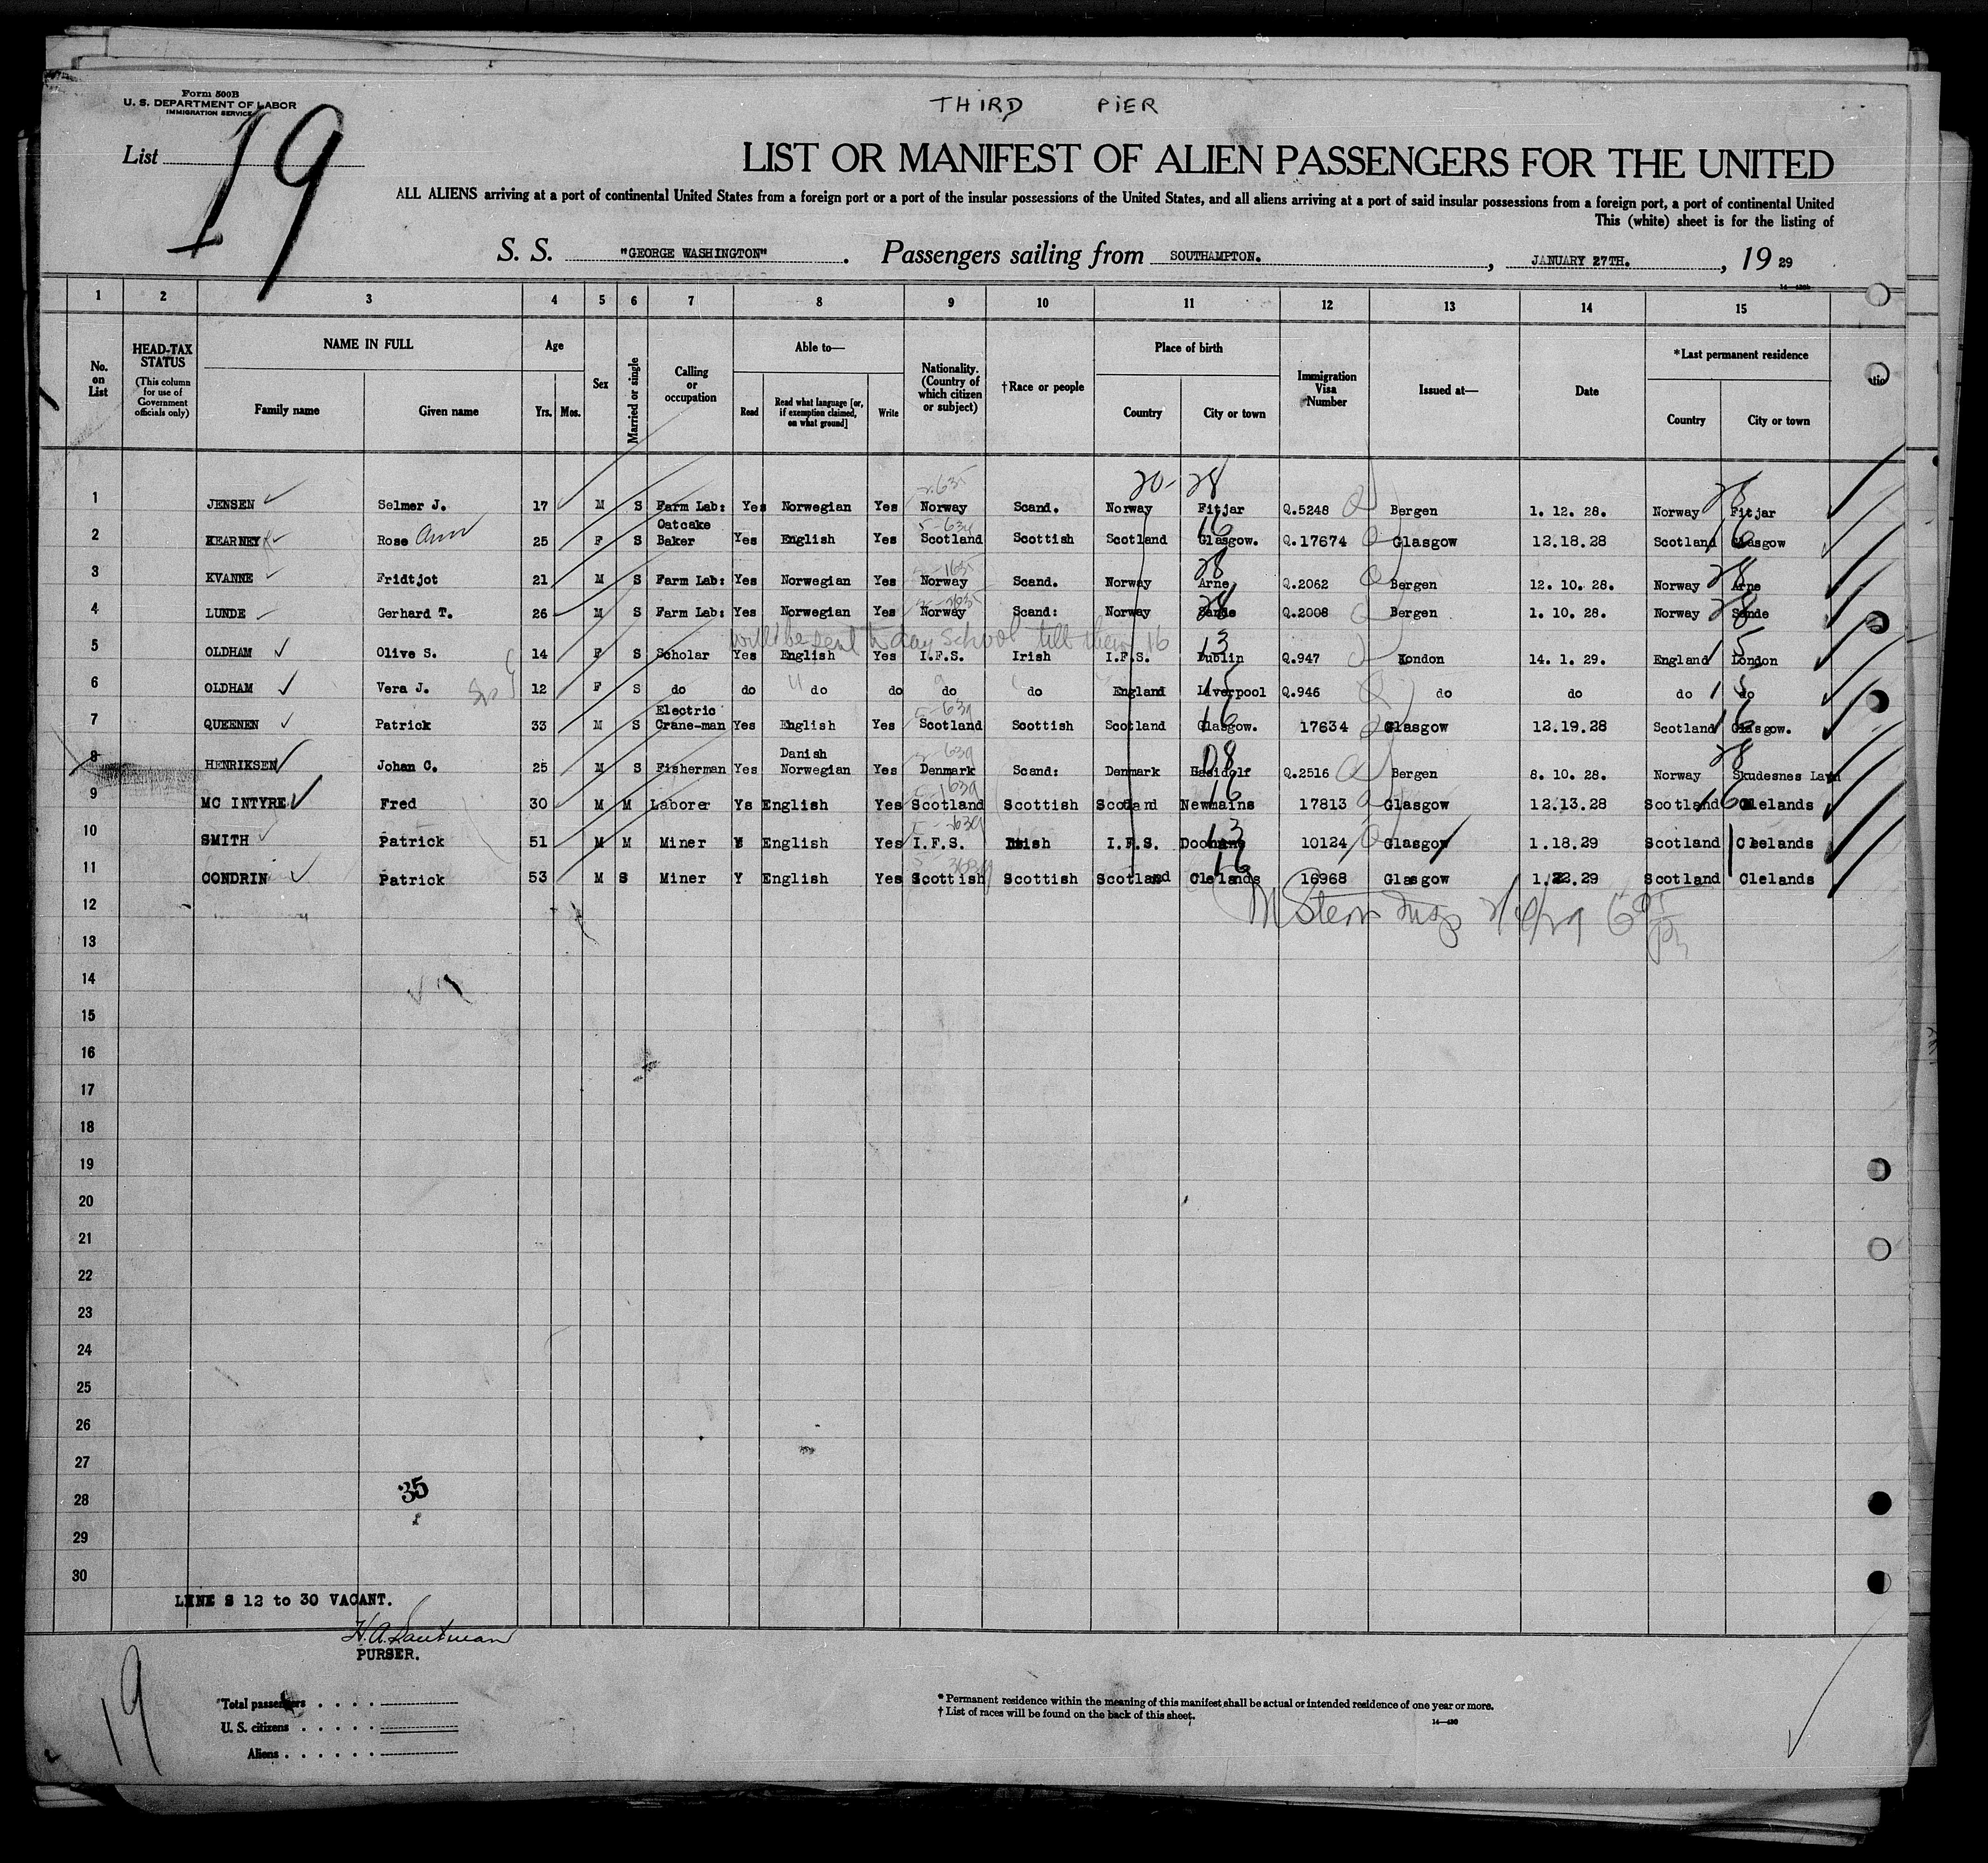 Form 500B
U. S. DEPARTMENT OF LABOR
IMMIGRATION SERVICE
THIRD PIER
List 19
LIST OR MANIFEST OF ALIEN PASSENGERS FOR THE UNITED
ALL ALIENS arriving at a port of continental United States from a foreign port or a port of the insular possessions of the United States, and all aliens arriving at a port of said insular possessions from a foreign port, a port of continental United
This (white) sheet is for the listing of
S. S. "GEORGE WASHINGTON". Passengers sailing from SOUTHAMPTON. , JANUARY 27TH. , 19 29
1 2 3 4 5 6 7 8 9 10 11 12 13 14 15
No. on List
HEAD-TAX STATUS
(This column for use of Government officials only)
NAME IN FULL
Family name Given name
Age
Yrs. Mos.
Sex
Married or single
Calling or occupation
Able to—
Read
Read what language [or, if exemption claimed, on what ground]
Write
Nationality. (Country of which citizen or subject)
†Race or people
Place of birth
Country City or town
Immigration Visa Number
Issued at—
Date
*Last permanent residence
Country City or town
20- 28
1 JENSEN Selmer J. 17 M S Farm Lab: Yes Norwegian Yes Norway Scand. Norway Fitjar Q.5248 Bergen 1. 12. 28. Norway Fitjar
2 KEARNEY Rose Ann 25 F S Oatcake Baker Yes English Yes Scotland Scottish Scotland Glasgow. Q.17674 Glasgow 12.18.28 Scotland Glasgow
3 KVANNE Fridtjot 21 M S Farm Lab: Yes Norwegian Yes Norway Scand. Norway Arne Q.2062 Bergen 12. 10. 28. Norway Arne
4 LUNDE Gerhard T. 26 M S Farm Lab: Yes Norwegian Yes Norway Scand: Norway Sande Q.2008 Bergen 1. 10. 28. Norway Sande
will be sent to day school till they 16
5 OLDHAM Olive S. 14 F S Scholar Yes English Yes I.F.S. Irish I.F.S. Dublin Q.947 London 14. 1. 29. England London
6 OLDHAM Vera J. 12 F S do do do do do do England Liverpool Q.946 do do do do
7 QUEENEN Patrick 33 M S Electric Crane-man Yes English Yes Scotland Scottish Scotland Glasgow. 17634 Glasgow 12.19.28 Scotland Glasgow.
8 HENRIKSEN Johan C. 25 M S Fisherman Yes Danish Norwegian Yes Denmark Scand: Denmark Q.2516 Bergen 8. 10. 28. Norway Skudesnes Land
9 MC INTYRE Fred 30 M M Laborer Ys English Yes Scotland Scottish Scotland Newmains 17813 Glasgow 12.13.28 Scotland Clelands
10 SMITH Patrick 51 M M Miner Y English Yes I.F.S. Irish I.F.S. 10124 Glasgow 1.18.29 Scotland Cleelands
11 CONDRIN Patrick 53 M S Miner Y English Yes Scottish Scottish Scotland Clelands 16968 Glasgow 1.22.29 Scotland Clelands
12 M Stern Insp
13
14
15
16
17
18
19
20
21
22
23
24
25
26
27
28 35
29
30
LINE S 12 to 30 VACANT.
PURSER.
19
Total passengers . . . .
U. S. citizens . . . . .
Aliens . . . . . .
* Permanent residence within the meaning of this manifest shall be actual or intended residence of one year or more.
† List of races will be found on the back of this sheet.